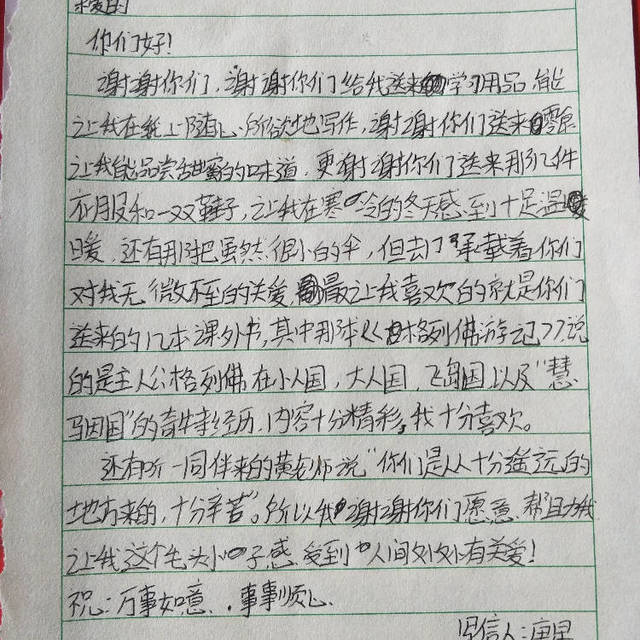 你们好!
谢谢你们,谢谢你们给我送来学习用品,能
让我在纸上随心所欲地写作,谢谢你们送来零食
让我能品尝甜蜜的味道,更谢谢你们送来那几件
衣服和一双鞋子,让我在寒冷的冬天感到十足温
暖,还有那把虽然很小的伞,但去了承载着你们
对我无微不至的关爱,最让我喜欢的就是你们
送来的几本课外书,其中那本《格列佛游记》,说
的是主人公格列佛在小人国,大人国,飞岛国以及"慧
马因国"的奇特经历,内容十分精彩,我十分喜欢。
还有听一同伴来的黄老师说"你们是从十分遥远的
地方来的,十分辛苦"。所以我谢谢你们愿意帮助我
让我这个毛头小子感受到人间处处有关爱!
祝:万事如意,事事顺心
写信人:唐